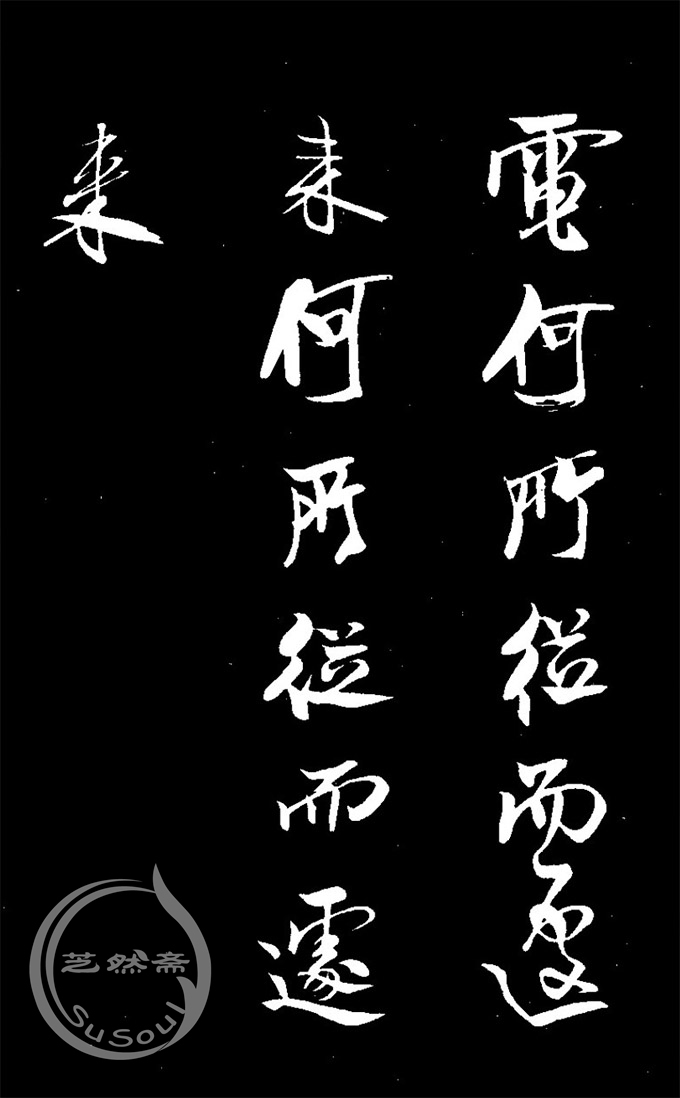 電何所從而遽
来何所從而遽
来
芝然斋
SuSoul